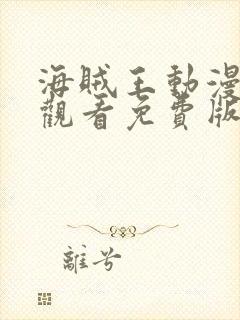 海賊王動漫
觀看免費版
離兮